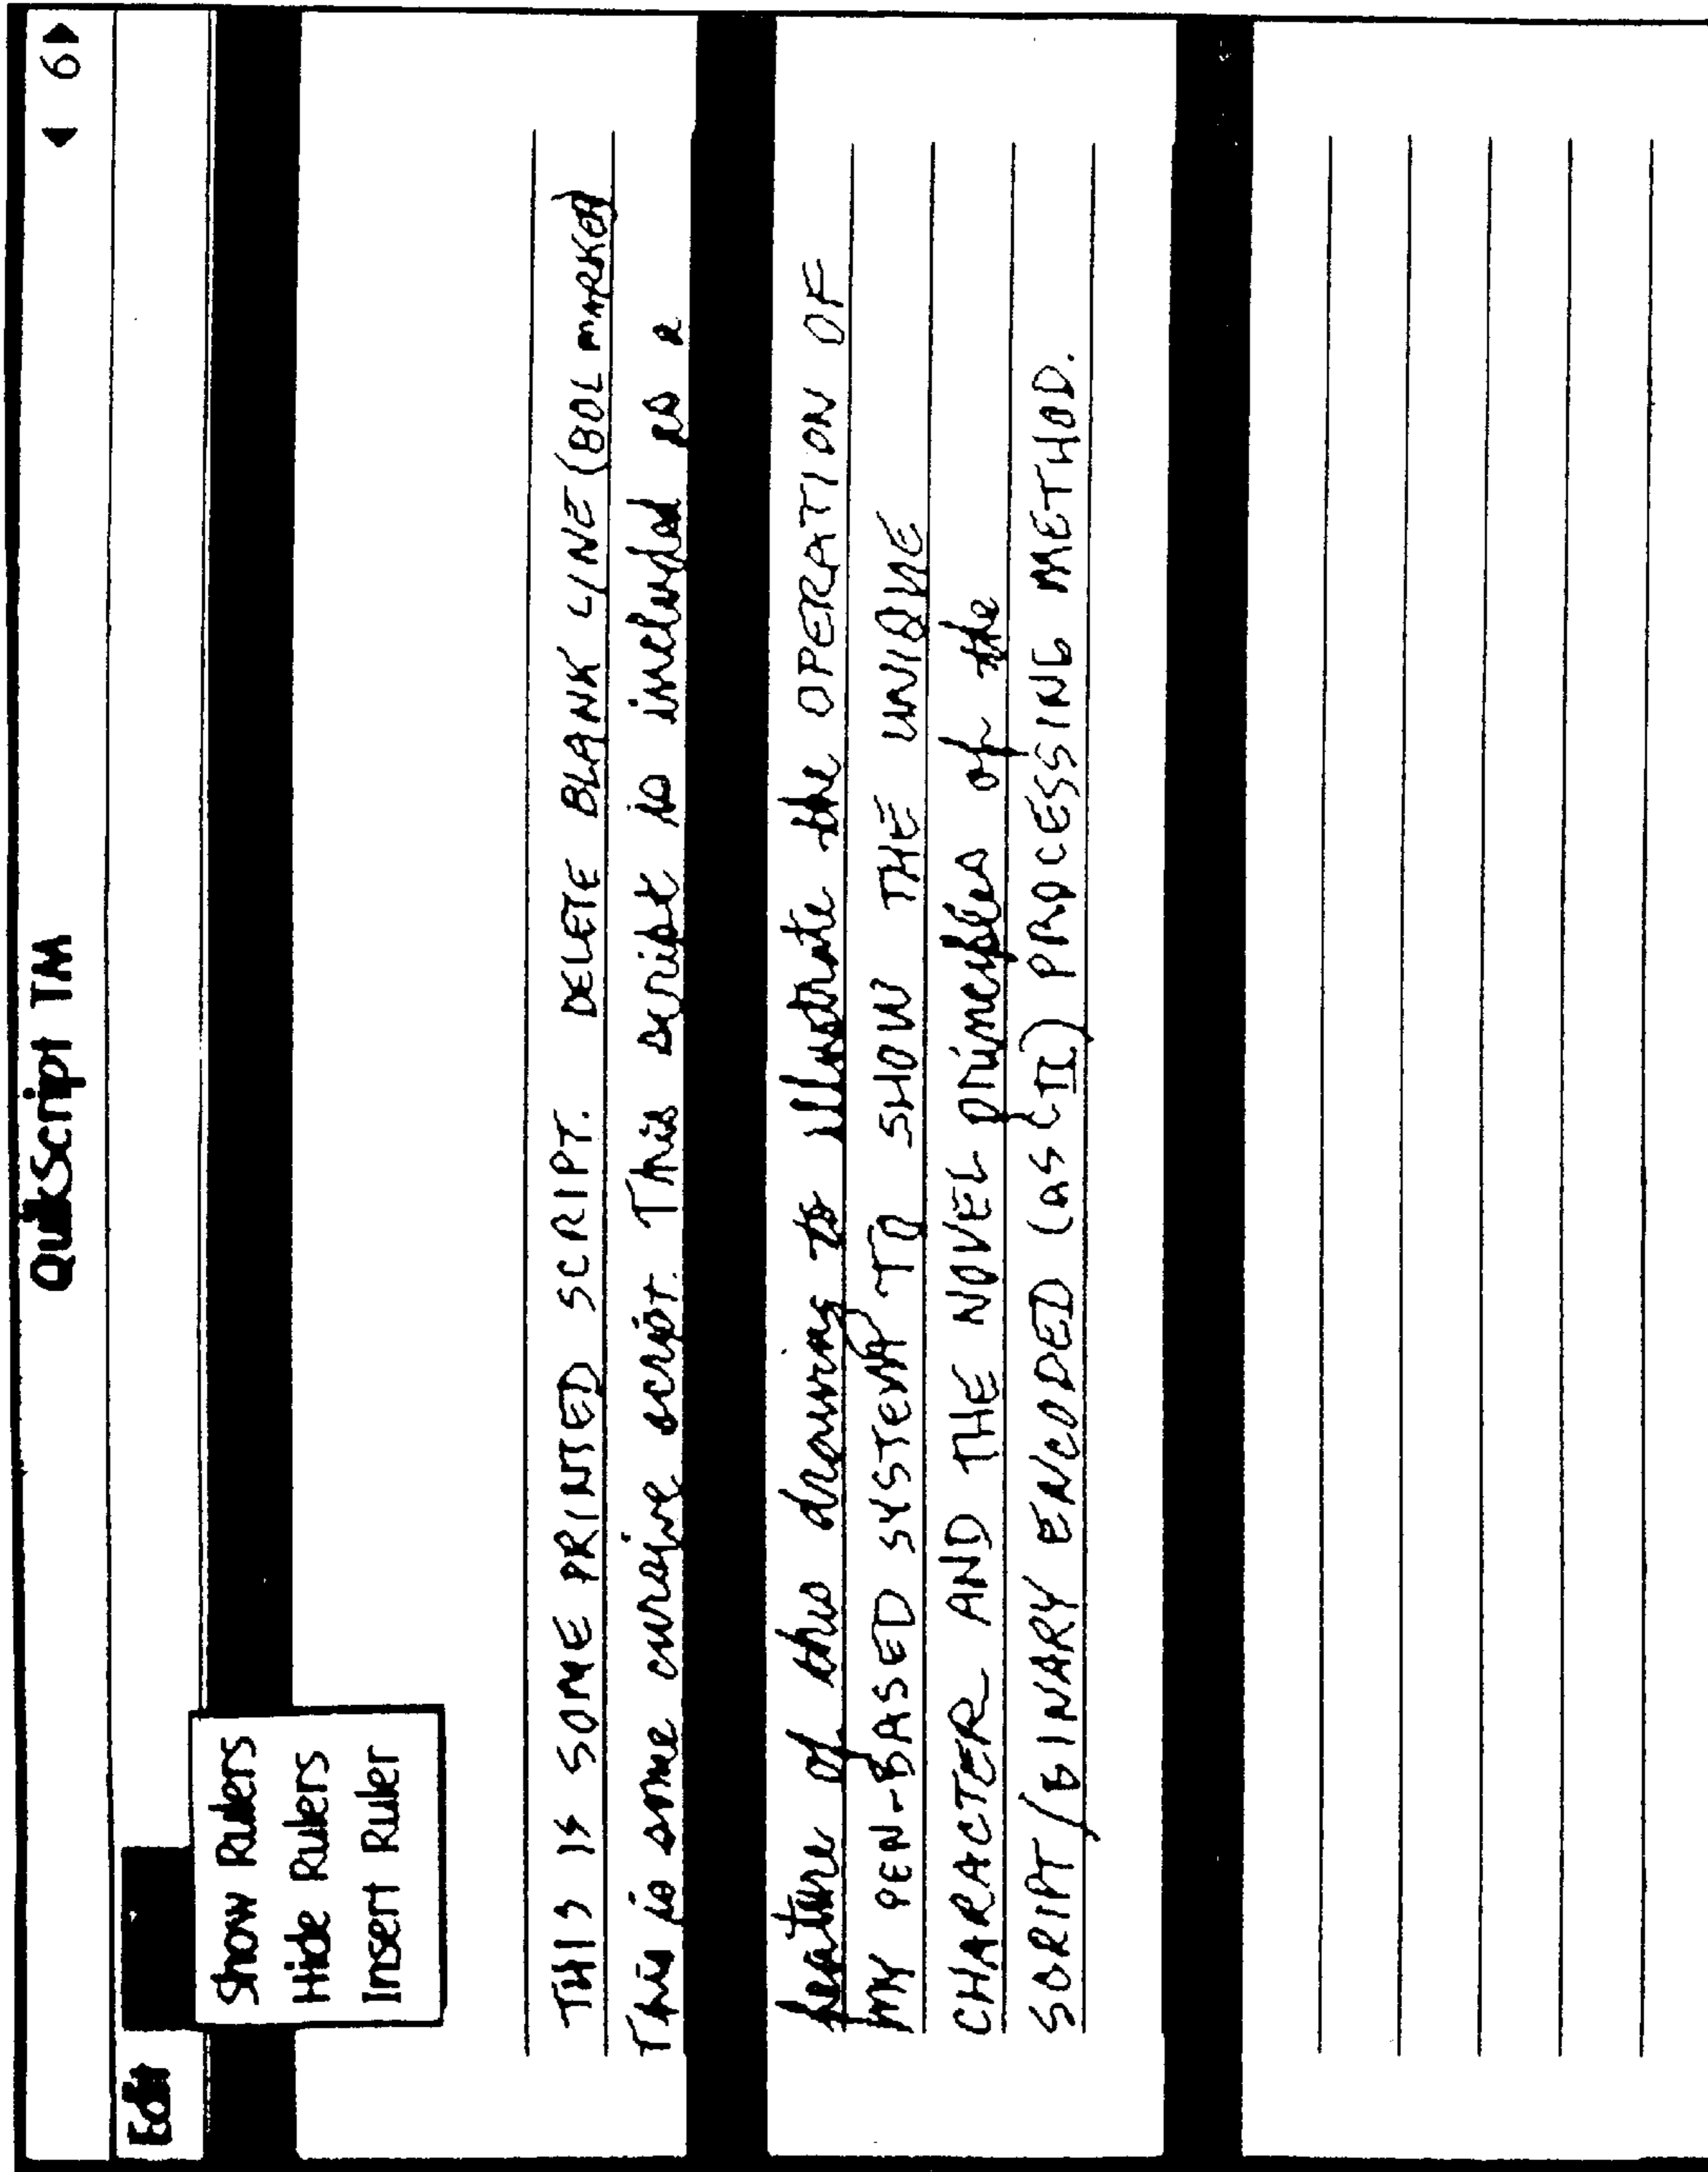 QuikScript TM
◀ 6▶
Edit
Show Rulers
Hide Rulers
Insert Ruler
THIS IS SOME PRINTED SCRIPT. DELETE BLANK LINE (BOL MARKED)
This is some cursive script. This script is included as a
feature of this drawing to illustrate the OPERATION OF
MY PEN-BASED SYSTEM TO SHOW THE UNIQUE
CHARACTER AND THE NOVEL principles of the
SCRIPT/BINARY ENCODED (ASCII) PROCESSING METHOD.